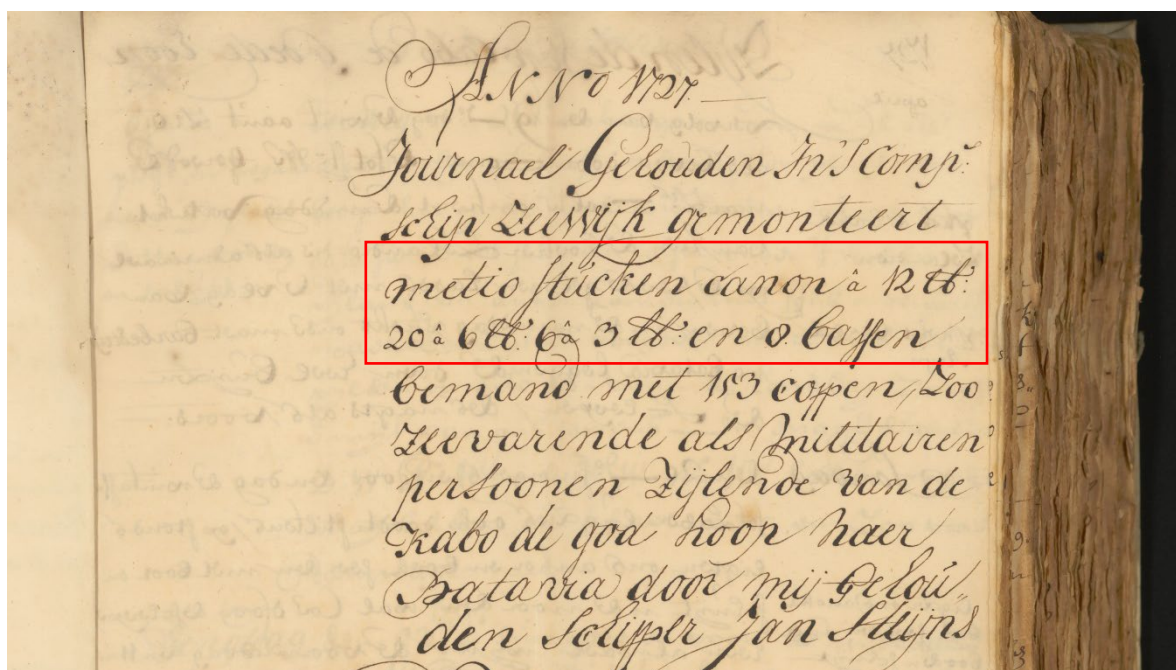 ANNO 1727
Journael Gehouden In's Comp:
schip Zeewijk gemonteert
met 10 stucken canon â 12 lb:
20 â 6 lb: 6 â 3 lb: en 8 bassen
bemand met 153 coppen, Zoo
Zeevarende als militairen
persoonen Zijlende van de
Kabo de god hoop naer
Batavia door mij gehou„
den schipper Jan Steijns